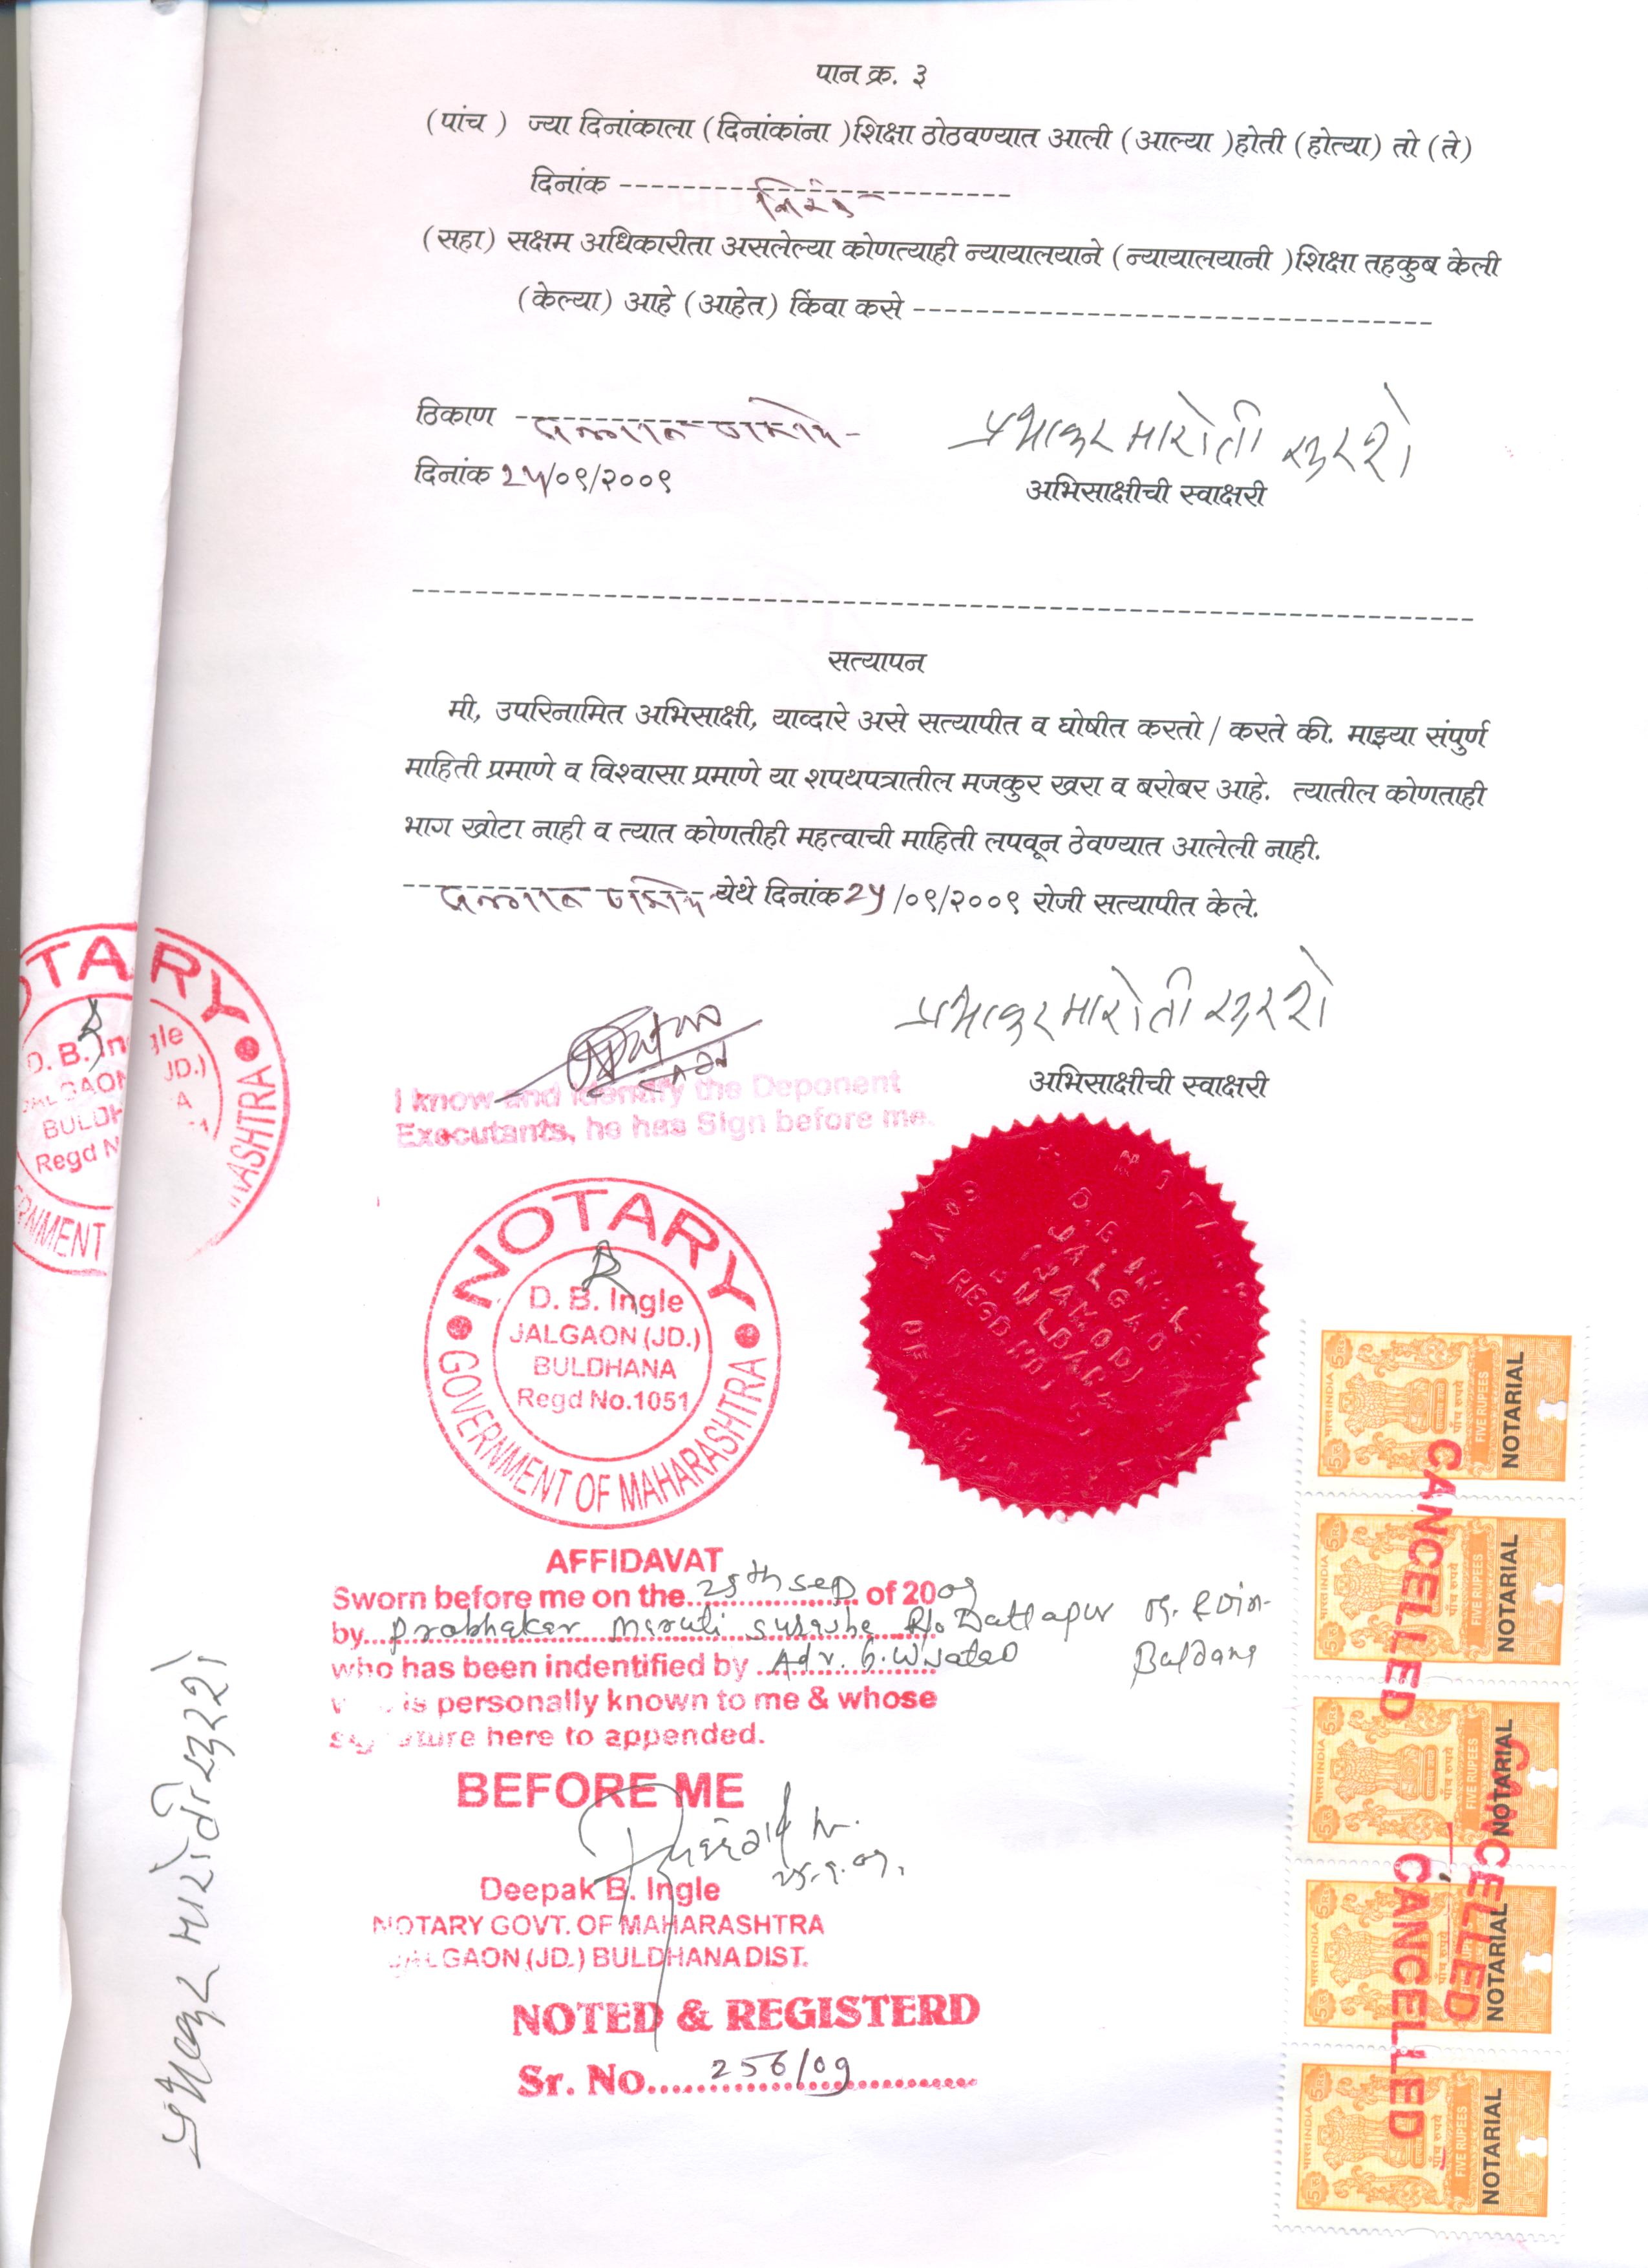 पान क्र. ३
(पांच ) ज्या दिनांकाला (दिनांकांना )शिक्षा ठोठवण्यात आली (आल्या )होती (होत्या) तो (ते)
दिनांक --------------------------
निरंक
(सहा) सक्षम अधिकारीता असलेल्या कोणत्याही न्यायालयाने (न्यायालयानी )शिक्षा तहकुब केली
(केल्या) आहे (आहेत) किंवा कसे ----------------------------------
ठिकाण
दिनांक २५/०९/२००९
प्रभाकर मारोती सुरशे
अभिसाक्षीची स्वाक्षरी
सत्यापन
मी, उपरिनामित अभिसाक्षी, याव्दारे असे सत्यापीत व घोषीत करतो / करते की. माझ्या संपुर्ण
माहिती प्रमाणे व विश्वासा प्रमाणे या शपथपत्रातील मजकुर खरा व बरोबर आहे. त्यातील कोणताही
भाग खोटा नाही व त्यात कोणतीही महत्वाची माहिती लपवून ठेवण्यात आलेली नाही.
येथे दिनांक २५/०९/२००९ रोजी सत्यापीत केले.
प्रभाकर मारोती सुरशे
अभिसाक्षीची स्वाक्षरी
I know and Identify the Deponent
Executants, he has Sign before me.
NOTARY
D. B. Ingle
JALGAON (JD.)
BULDHANA
Regd No.1051
GOVERNMENT OF MAHARASHTRA
TARY
D. B. Ingle
JD.)
BULDH
Regd N
ERNMENT
ASHTRA
D.B. INGLE
JALGAON
(JAMOD)
BULDANA
REGD NO.
AFFIDAVAT
Sworn before me on the 25th Sep of 2009
by Prabhakar Maruti Surashe R/o Dattapur
who has been indentified by Adv. G. W.
is personally known to me & whose
signature here to appended.
BEFORE ME
25.9.09.
Deepak B. Ingle
NOTARY GOVT. OF MAHARASHTRA
JALGAON (JD.) BULDHANA DIST.
NOTED & REGISTERD
Sr. No. 256/09
प्रभाकर मारोती सुरशे
भारत INDIA
पाँच रुपये
FIVE RUPEES
NOTARIAL
CANCELLED
भारत INDIA
पाँच रुपये
FIVE RUPEES
NOTARIAL
भारत INDIA
पाँच रुपये
FIVE RUPEES
NOTARIAL
CANCELLED
भारत INDIA
NOTARIAL
CANCELLED
भारत INDIA
पाँच रुपये
FIVE RUPEES
NOTARIAL